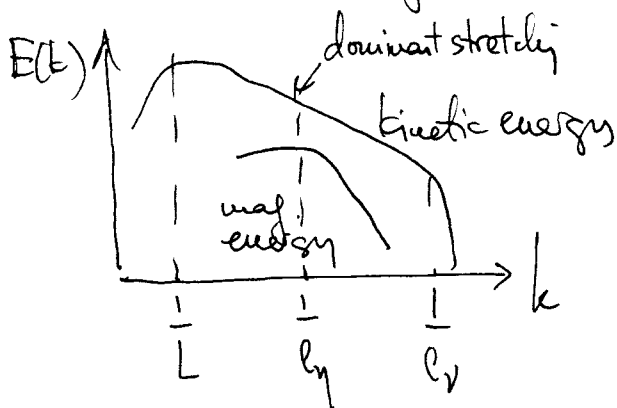 dominant stretching
E(k)
kinetic energy
mag.
energy
k
1/L
1/ℓη
1/ℓν